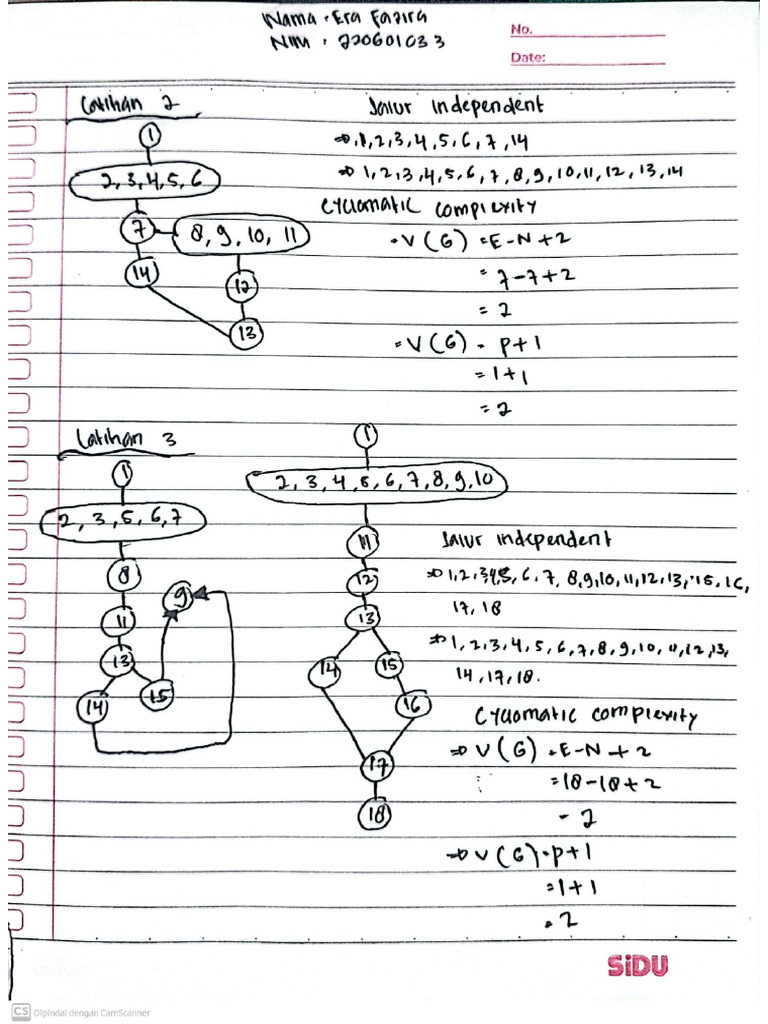 Nama : Era Fazira
NIM : 220601033
No.
Date:
Latihan 2
Jalur independent
⇒ 1, 2, 3, 4, 5, 6, 7, 14
⇒ 1, 2, 3, 4, 5, 6, 7, 8, 9, 10, 11, 12, 13, 14
Cyclomatic complexity
• V(G) = E-N+2
= 7-7+2
= 2
= V(G) = P+1
= 1+1
= 2
1
2, 3, 4, 5, 6
7
8, 9, 10, 11
14
12
13
Latihan 3
1
2, 3, 5, 6, 7
8
9
11
13
14
15
1
2, 3, 4, 5, 6, 7, 8, 9, 10
11
12
13
14
15
16
17
18
Jalur independent
⇒ 1, 2, 3, 4, 5, 6, 7, 8, 9, 10, 11, 12, 13, 15, 16,
17, 18
⇒ 1, 2, 3, 4, 5, 6, 7, 8, 9, 10, 11, 12, 13,
14, 17, 18.
Cyclomatic complexity
⇒ V(G) = E-N+2
= 18-18+2
= 2
⇒ V(G) = P+1
= 1+1
= 2
SiDU
CS Dipindai dengan CamScanner